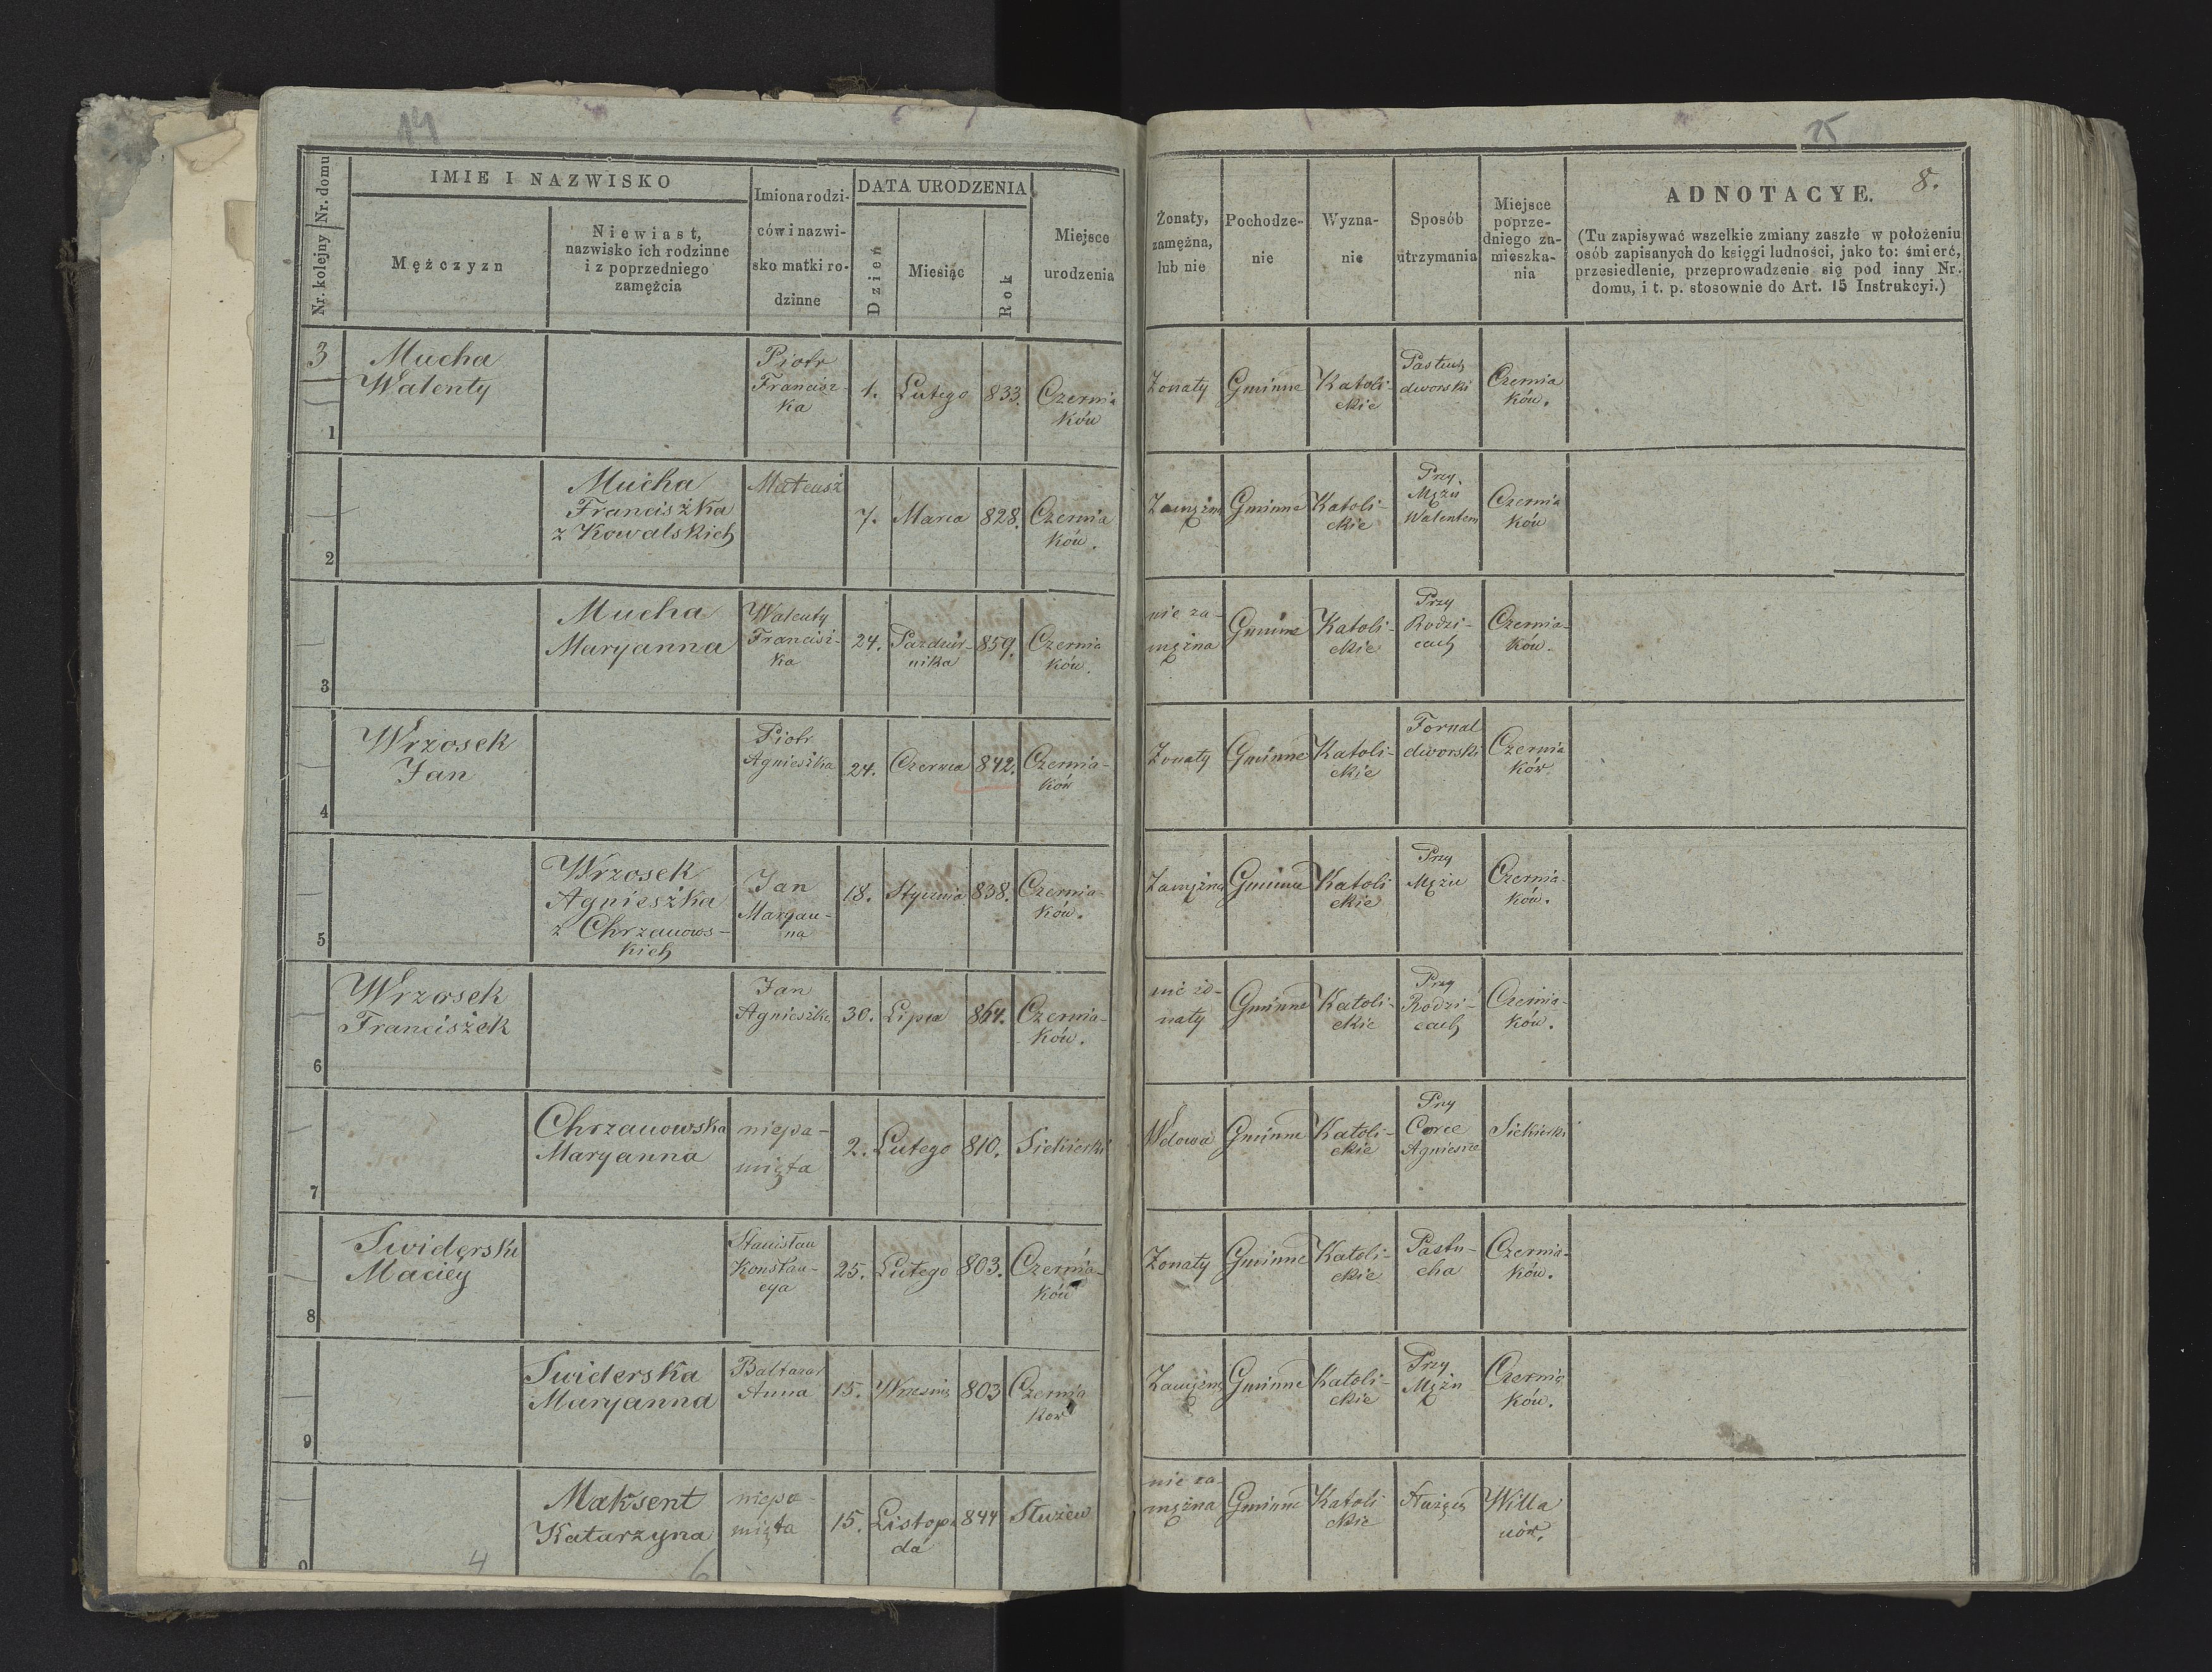 14
15
8.
Nr. kolejny Nr. domu
IMIE I NAZWISKO
Mężczyzn
Niewiast,
nazwisko ich rodzinne
i z poprzedniego
zamęźcia
Imiona rodzi-
ców i nazwi-
sko matki ro-
dzinne
DATA URODZENIA
Dzień
Miesiąc
Rok
Miejsce
urodzenia
Żonaty,
zamęźna,
lub nie
Pochodze-
nie
Wyzna-
nie
Sposób
utrzymania
Miejsce
poprze-
dniego za-
mieszka-
nia
ADNOTACYE.
(Tu zapisywać wszelkie zmiany zaszłe w położeniu
osób zapisanych do księgi ludności, jako to: śmierć,
przesiedlenie, przeprowadzenie się pod inny Nr.
domu, i t. p. stosownie do Art. 15 Instrukcyi.)
3
1
Mucha
Walenty
Piotr
Francisz-
ka
1.
Lutego
833.
Czernia
ków
Żonaty
Gminne
Katoli-
ckie
Pastuch
dworski
Czernia
ków.
2
Mucha
Franciszka
z Kowalskich
Mateusz
7.
Marca
828.
Czernia
ków.
Zamężna
Gminne
Katoli-
ckie
Przy
Mężu
Walentem
Czernia
ków
3
Mucha
Maryanna
Walenty
Francisz-
ka
24.
Pazdzier-
nika
859.
Czernia
ków.
nie za-
mężna
Gminne
Katoli-
ckie
Przy
Rodzi-
cach
Czernia-
ków.
4
Wrzosek
Jan
Piotr
Agnieszka
24.
Czerwca
842.
Czernia-
ków
Żonaty
Gminne
Katoli-
ckie
Fornal
dworski
Czernia
ków.
5
Wrzosek
Agnieszka
z Chrzanows-
kich
Jan
Maryan-
na
18.
Stycznia
838.
Czernia-
ków.
Zamężna
Gminne
Katoli
ckie
Przy
Mężu
Czernia-
ków.
6
Wrzosek
Franciszek
Jan
Agnieszka
30.
Lipca
864.
Czernia-
ków.
nie żo-
naty
Gminne
Katoli-
ckie
Przy
Rodzi-
cach
Czernia-
ków.
7
Chrzanowska
Maryanna
niepa-
mięta
2.
Lutego
810.
Siekierki
Wdowa
Gminne
Katoli-
ckie
Przy
Corce
Agniesze
Siekierki
8
Swiderski
Maciey
Stanisław
Konstan-
cya
25.
Lutego
803.
Czernia-
ków
Żonaty
Gminne
Katoli-
ckie
Pastu-
cha
Czernia-
ków.
9
Swiderska
Maryanna
Baltazar
Anna
15.
Wrzesnia
803
Czernia
kow
Zamężna
Gminne
Katoli-
ckie
Przy
Mężu
Czernia
ków.
0
Maksent
Katarzyna
niepa-
mięta
15.
Listopa
da
844
Służew
nie za-
mężna
Gminne
Katoli
ckie
Służąca
Willa
nów.
4
6